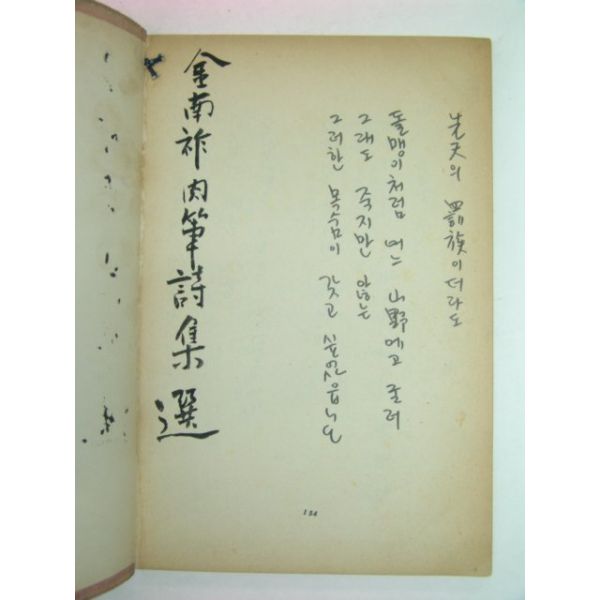 先天의 罰族이더라도
돌맹이처럼 어느 山野에고 굴러
그래도 죽지만 않는
그러한 목숨이 갖고 싶었읍니다
金南祚肉筆詩集選